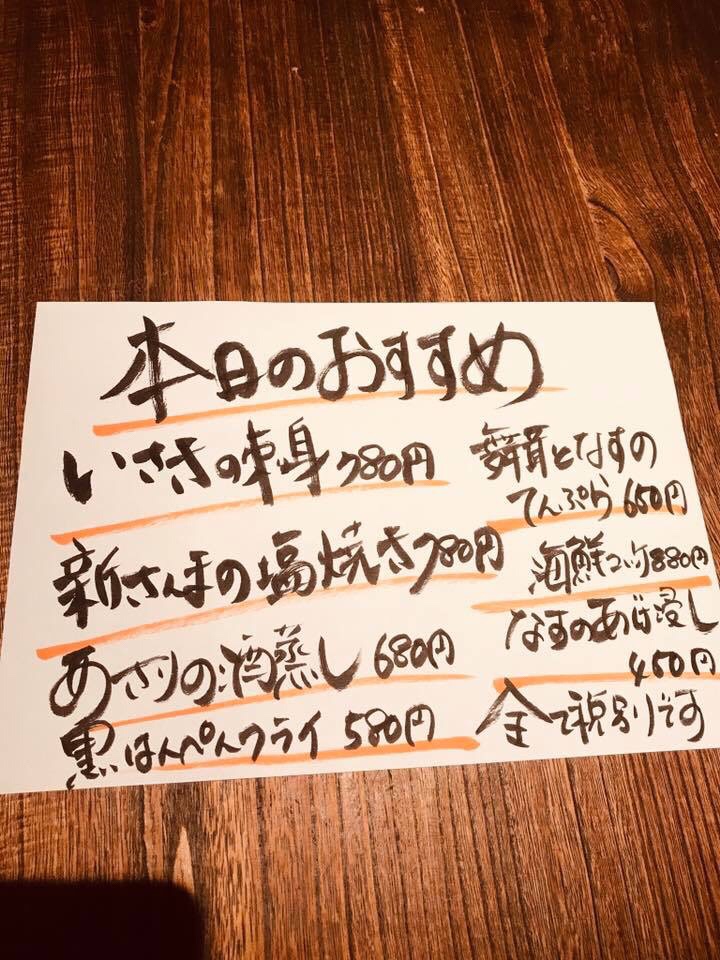 本日のおすすめ
いさきの刺身 780円
新さんまの塩焼き 780円
あさりの酒蒸し 680円
黒はんぺんフライ 580円
舞茸となすの
てんぷら 650円
海鮮コロッケ 880円
なすのあげ浸し
450円
全て税別です